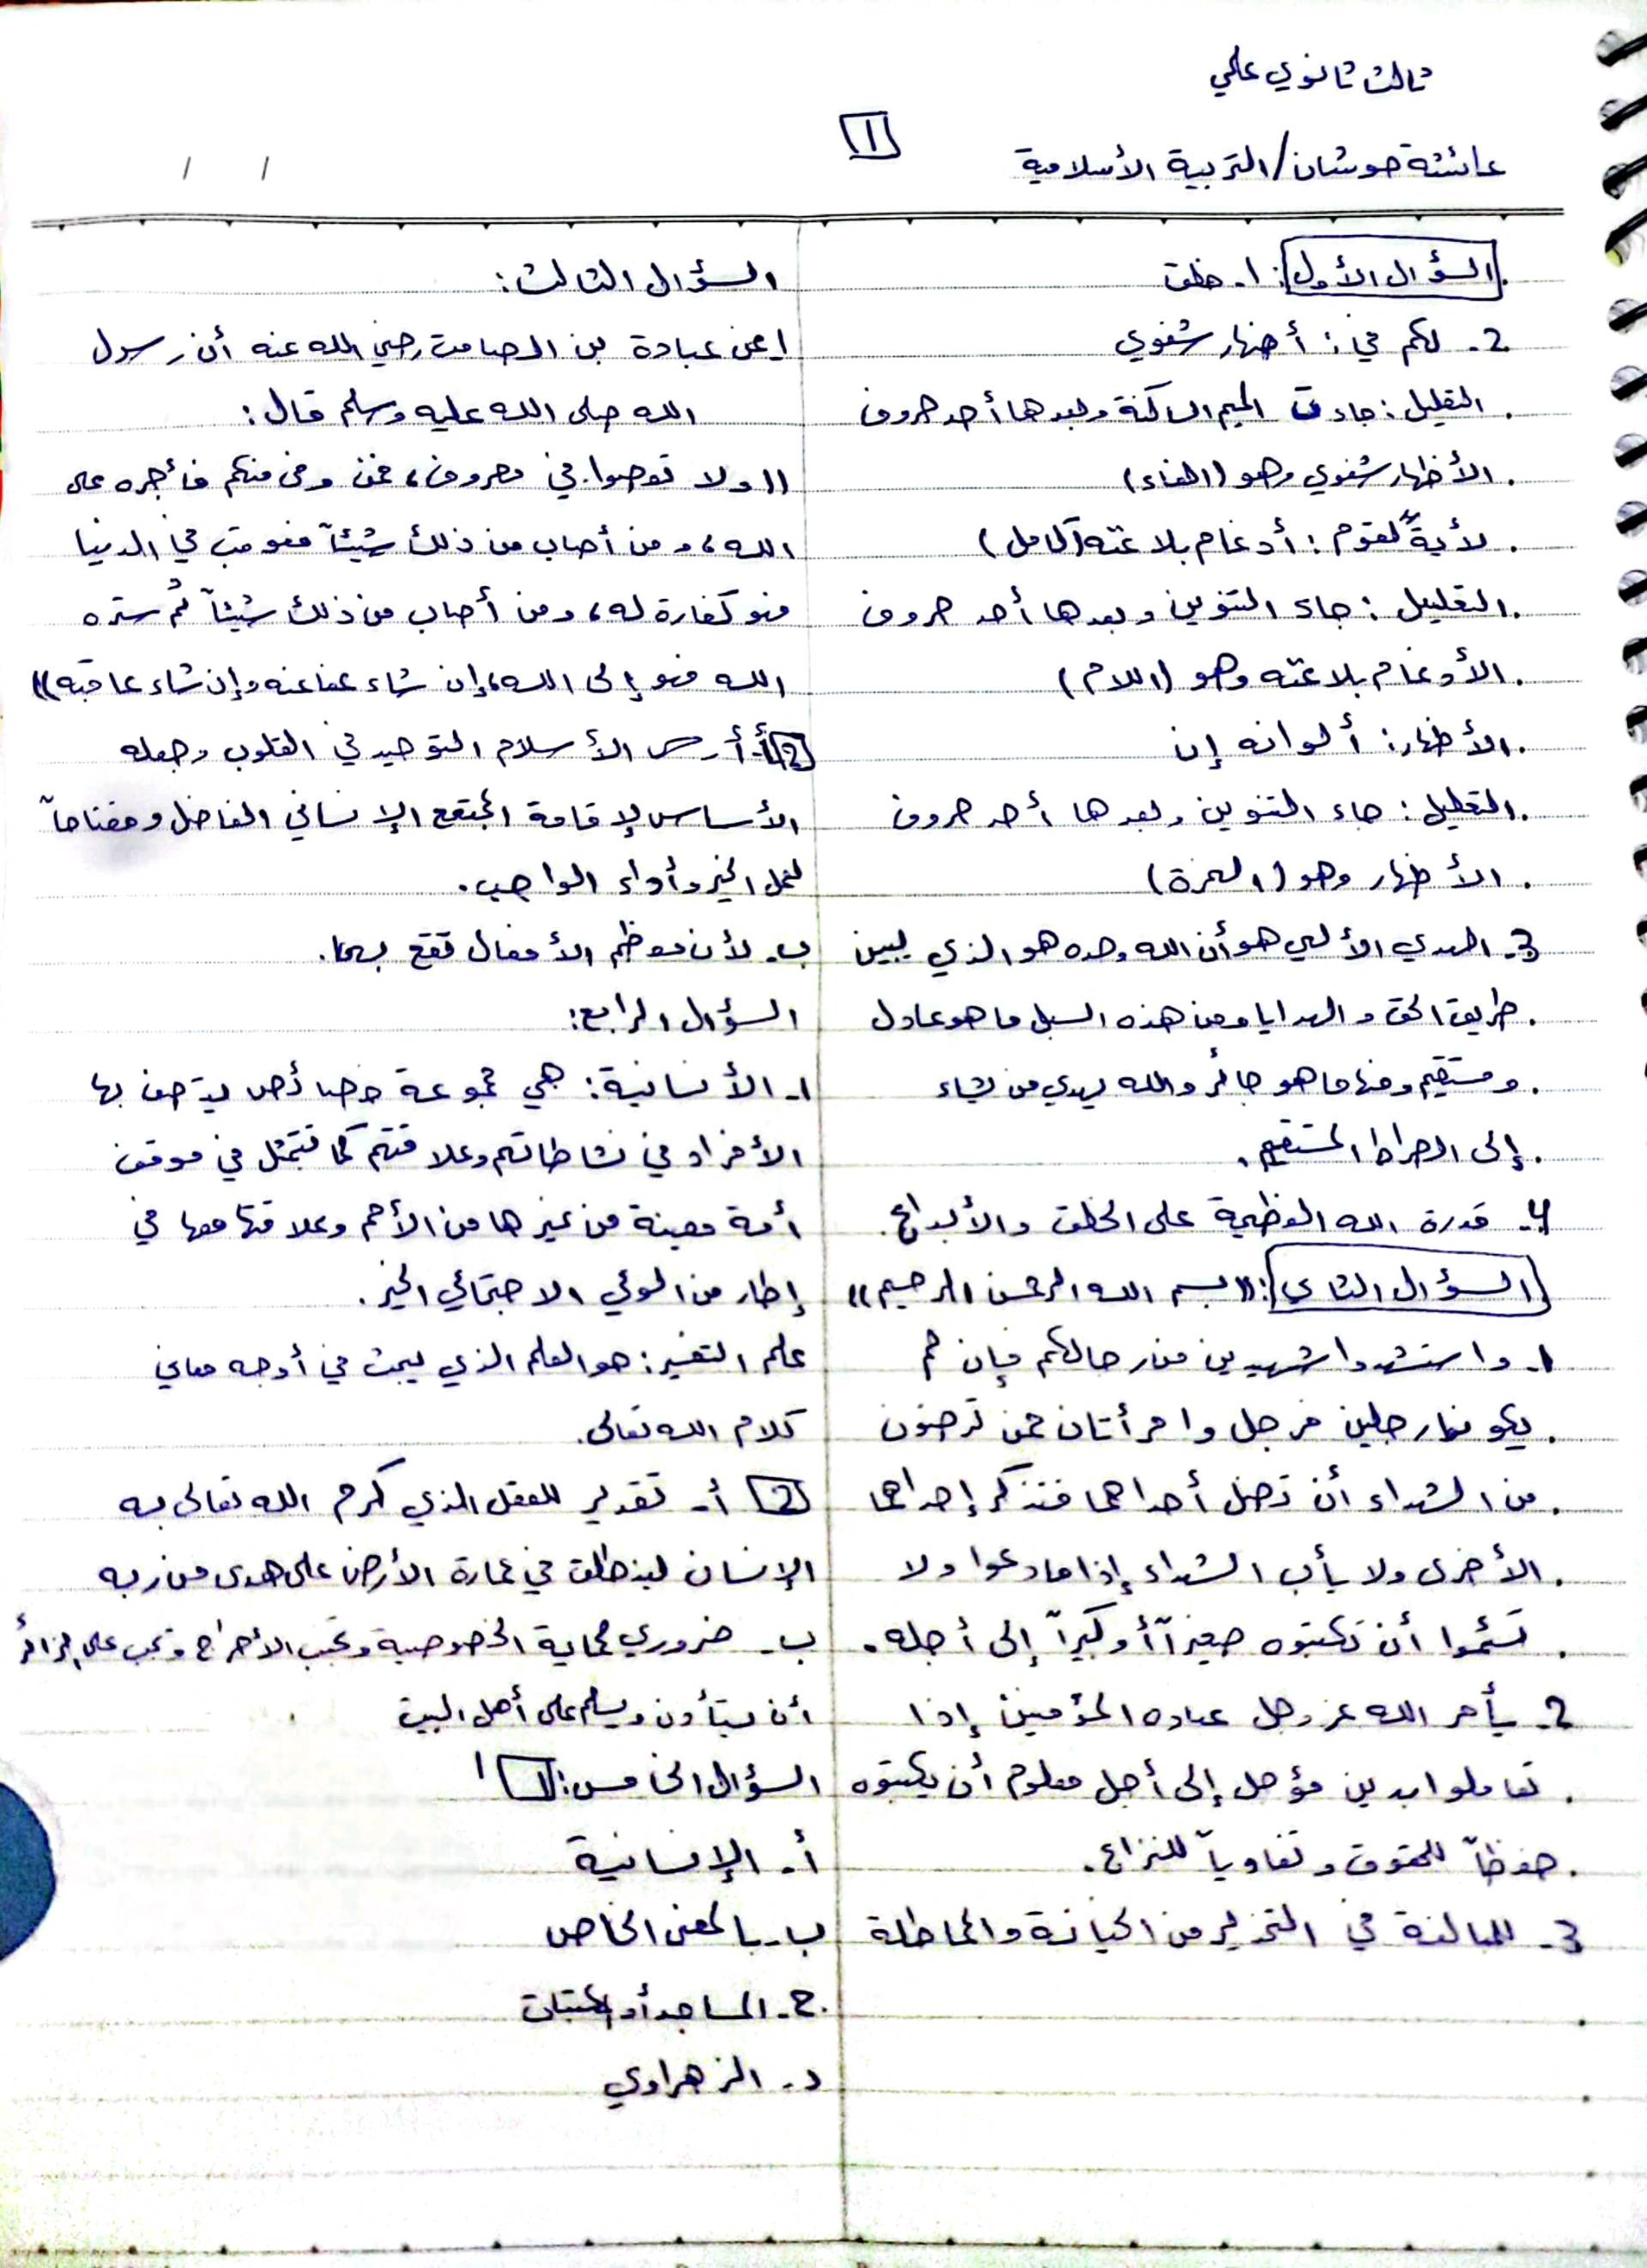 ثالث ثانوي علمي
عائشة حوشان/التربية الأسلامية
1
/ /
السؤال الأول: 1. خلق
2. لكم في: أضهار شفوي
التعليل: جاءت الميم الساكنة وبعدها أحد حروف
الأظهار شفوي وهو (الفاء)
لأيةً لقوم: أدغام بلا غنه (كامل)
التعليل: جاء التنوين وبعدها أحد حروف
الأدغام بلا غنه وهو (اللام)
الأظهار: ألوانه إن
التعليل: جاء التنوين وبعدها أحد حروف
الأظهار وهو (الهمزة)
3. الهدي الألهي هو أن الله وحده هو الذي يبين
طريق الحق والهدايا ومن هذه السبل ما هو عادل
ومستقيم ومنها ما هو جائر والله يهدي من يشاء
إلى الصراط المستقيم.
4. قدرة الله العظيمة على الخلق والأبداع.
السؤال الثاني: ((بسم الله الرحمن الرحيم))
1. واستشهدوا شهيدين من رجالكم فإن لم
يكونا رجلين فرجل وامرأتان ممن ترضون
من الشهداء أن تضل أحداهما فتذكر إحداهما
الأخرى ولا يأب الشهداء إذا ما دعوا ولا
تسئموا أن تكتبوه صغيراً أو كبيراً إلى أجله.
2. يأمر الله عز وجل عباده المؤمين إذا
تعاملوا بدين مؤجل إلى أجل معلوم أن يكتبوه
حفظاً للحقوق وتفاوياً للنزاع.
3. للمبالغة في التحذير من الخيانة والمماطلة
السؤال الثالث:
1. عن عبادة بن الصامت رضي الله عنه أن رسول
الله صلى الله عليه وسلم قال:
((ولا تعصوا في معروف، فمن وفى منكم فأجره على
الله، ومن أصاب من ذلك شيئاً فعوقب في الدنيا
فهو كفارة له، ومن أصاب من ذلك شيئاً ثُم ستره
الله فهو إلى الله، إن شاء عفا عنه وإن شاء عاقبه))
2 أ. أرسى الأسلام التوحيد في القلوب وجعله
الأساس لإقامة المجتمع الإنساني الفاضل ومفتاحاً
لعمل الخير وأداء الواجب.
ب. لأن معظم الأفعال تقع بهما.
السؤال الرابع:
1. الأنسانية: هي مجموعة خصائص يتصف بها
الأفراد في نشاطاتهم وعلاقتهم كما تتمثل في موقف
أمة معينة من غيرها من الأمم وعلاقتها معها في
إطار من الوعي الاجتماعي الخير.
علم التفسير: هو العلم الذي يبحث في أوجه معاني
كلام الله تعالى.
2 أ. تقدير للعقل الذي كرم الله تعالى به
الإنسان لينطلق في عمارة الأرض على هدى من ربه
ب. ضروري لحماية الخصوصية وتجنب الأحراج ويجب على الزائر
أن يستأذن ويسلم على أهل البيت
السؤال الخامس: 1
أ. الإنسانية
ب. بالمعنى الخاص
ج. المساجد أو المكتبات
د. الزهراوي